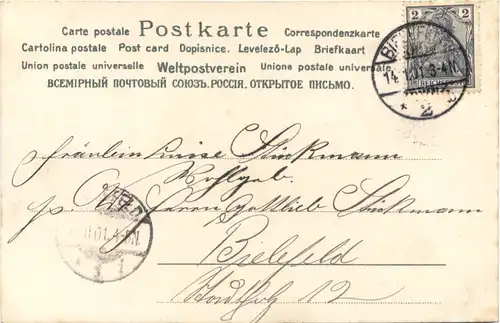 Carte postale Postkarte Correspondenzkarte
Cartolina postale Post card Dopisnice. Levelező-Lap Briefkaart
Union postale universelle Weltpostverein Unione postale universale
ВСЕМІРНЫЙ ПОЧТОВЫЙ СОЮЗЪ. РОССІЯ. ОТКРЫТОЕ ПИСЬМО.
2 2
Fräulein Luise Stückmann
Wohlgeb.
p. Adr. Herrn Gottlieb Stückmann
Bielefeld
Stadtholz 12